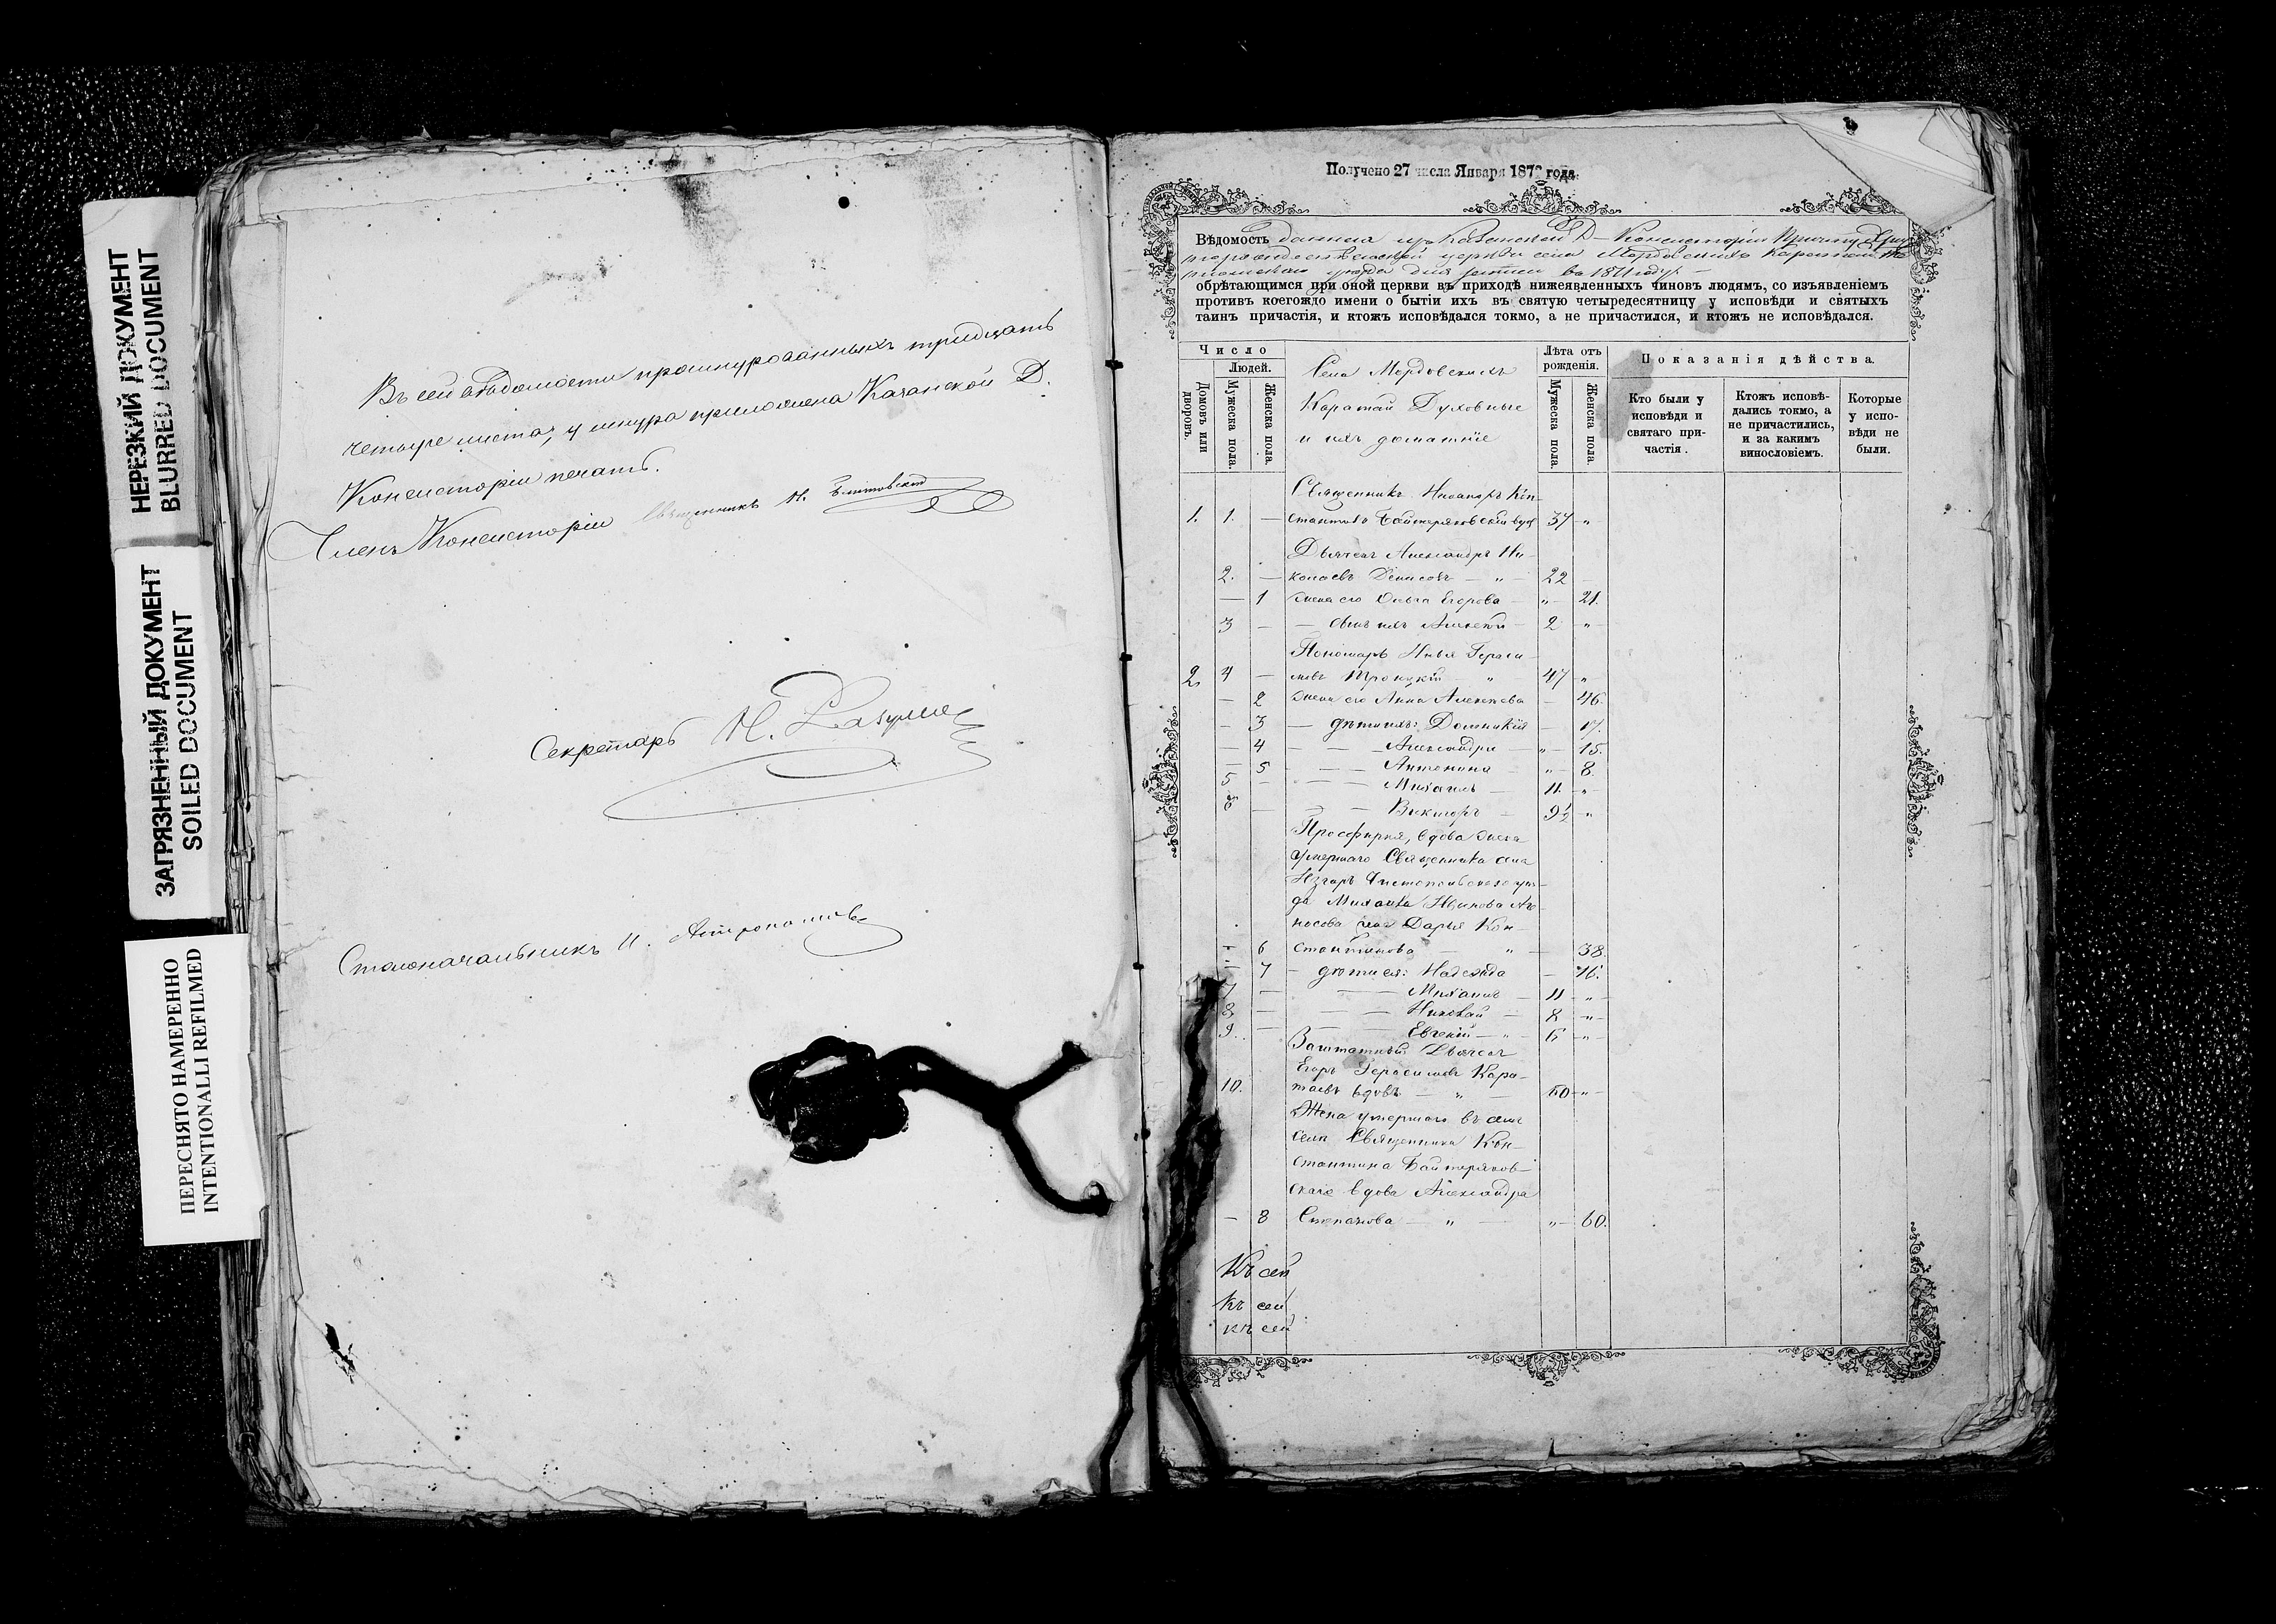 НЕРЕЗКИЙ ДОКУМЕНТ
BLURRED DOCUMENT
ЗАГРЯЗНЕННЫЙ ДОКУМЕНТ
SOILED DOCUMENT
ПЕРЕСНЯТО НАМЕРЕННО
INTENTIONALLI REFILMED
Въ сей вѣдомости прошнурованныхъ тридцать
четыре листа, у шнура приложена Казанской Д.
Консисторіи печать.
Членъ Консисторіи Священникъ Н.
Секретарь Н. Разумов
Столоначальникъ И.
Получено 27 числа Января 187 года.
Вѣдомость данная изъ Казанской Д Консисторіи Причту
церкви села Мордовскихъ Каратай
уѣзда для въ 1871 году.
обрѣтающимся при оной церкви въ приходѣ нижеявленныхъ чиновъ людямъ, со изъявленіемъ
противъ коегождо имени о бытіи ихъ въ святую четыредесятницу у исповѣди и святыхъ
таинъ причастія, и ктожъ исповѣдался токмо, а не причастился, и ктожъ не исповѣдался.
Число
Людей.
Домовъ или дворовъ.
Мужеска пола.
Женска пола.
Села Мордовскихъ
Каратай Духовные
и ихъ домашніе
Лѣта отъ рожденія.
Мужеска пола.
Женска пола.
Показанія дѣйства.
Кто были у исповѣди и святаго причастія.
Ктожъ исповѣдались токмо, а не причастились, и за какимъ винословіемъ.
Которые у исповѣди не были.
Священникъ Никаноръ Кон-
1. 1. — стантиновъ Байтеряковскій вдов 37 „
Дьячекъ Александръ Ни-
2. — колаевъ Денисовъ — „ 22 —
— 1 жена его Ольга Егорова „ 21.
3 — — сынъ ихъ Алексѣй 2 „
Пономарь Илья Гераси-
2. 4 — мовъ Троицкій — „ 47 „
— 2 жена его Анна Алексѣева — 46.
— 3 — дѣти ихъ: Домникія — 17.
— 4 — — Александра „ 15.
— 5 — — Антонина „ 8.
5 — — — Михаилъ — 11. „
6 — — — Викторъ — 9½ „
Просфирня, вдова жена
умершаго Священника села
Чистопольскаго уѣз-
да Михаила
Дарья Кон-
— 6 стантинова „ — 38.
— 7 — дѣти ея: Надежда — 16.
7 — — — Михаилъ — 11 „
8 — — — Николай — 8 „
9 — — — Евгеній — „ 6 „
Заштатный Дьячекъ
Егоръ Герасимовъ Кара-
10. таевъ вдовъ — „ — 60 „
Жена умершаго въ семъ
селѣ Священника Кон-
стантина Байтеряков-
скаго вдова Александра
— 8 Степанова — „ — „ 60.
Къ сей
къ сей
къ сей